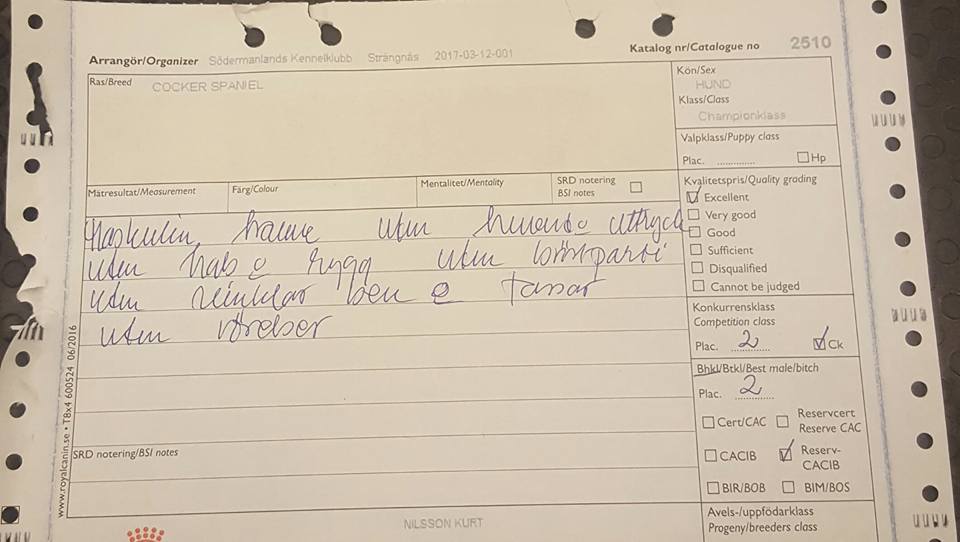 Arrangör/Organizer Södermanlands Kennelklubb Strängnäs 2017-03-12-001 Katalog nr/Catalogue no 2510
Ras/Breed COCKER SPANIEL
Kön/Sex
HUND
Klass/Class
Championklass
Valpklass/Puppy class
Plac. .............. Hp
Mätresultat/Measurement Färg/Colour Mentalitet/Mentality SRD notering
BSI notes
Kvalitetspris/Quality grading
Excellent
Very good
Good
Sufficient
Disqualified
Cannot be judged
Maskulin, hanne utm huvud o uttryck
utm hals o rygg utm bröstparti
utm vinklar ben o tassar
utm rörelser
Konkurrensklass
Competition class
Plac. 2 Ck
Bhkl/Btkl/Best male/bitch
Plac. 2
Cert/CAC Reservcert
Reserve CAC
CACIB Reserv-
CACIB
BIR/BOB BIM/BOS
SRD notering/BSI notes
Avels-/uppfödarklass
Progeny/breeders class
NILSSON KURT
www.royalcanin.se • T8x4 600524 06/2016